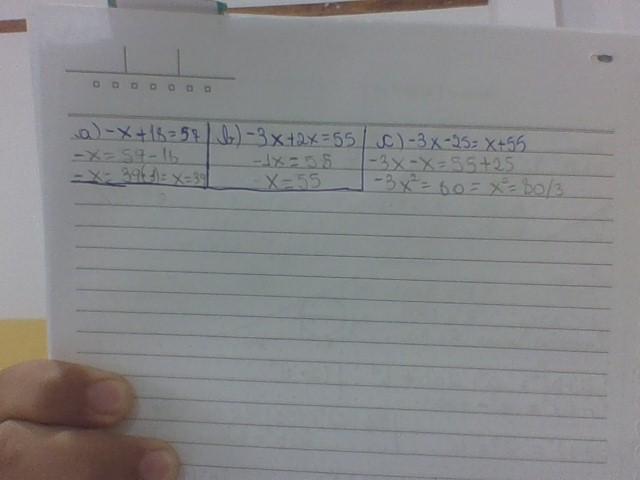 a) -x+18=57
-x=59-18
-x=39(-1)=x=39
b) -3x+2x=55
-1x=55
-x=55
c) -3x-25=x+55
-3x-x=55+25
-3x²=80=x²=80/3